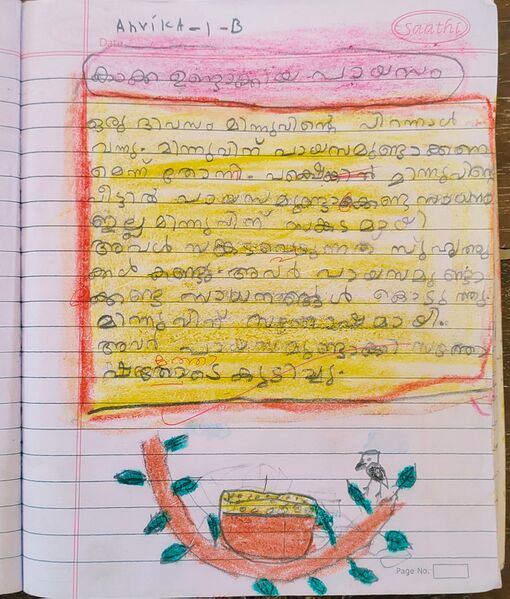 Anvika-1-B
Saathi
Date
കാക്ക ഉണ്ടാക്കിയ പായസം
ഒരു ദിവസം മിന്നുവിന്റെ പിറന്നാൾ
വന്നു. മിന്നുവിന് പായസമുണ്ടാക്കണ
മെന്ന് തോന്നി. പക്ഷെ മിന്നുവിന്റെ
വീട്ടിൽ പായസമുണ്ടാക്കേണ്ട സാധനം
ഇല്ല മിന്നുവിന് സങ്കടമായി
അവൾ സങ്കടപെടുന്നത് സുഹൃത്തു
ക്കൾ കണ്ടു. അവർ പായസമുണ്ടാ
ക്കേണ്ട സാധനങ്ങൾ കൊടുത്തു.
മിന്നുവിന് സന്തോഷമായി.
അവർ പായസമുണ്ടാക്കി സന്തോ
ഷത്തോടെ കുടിച്ചു.
Page No.